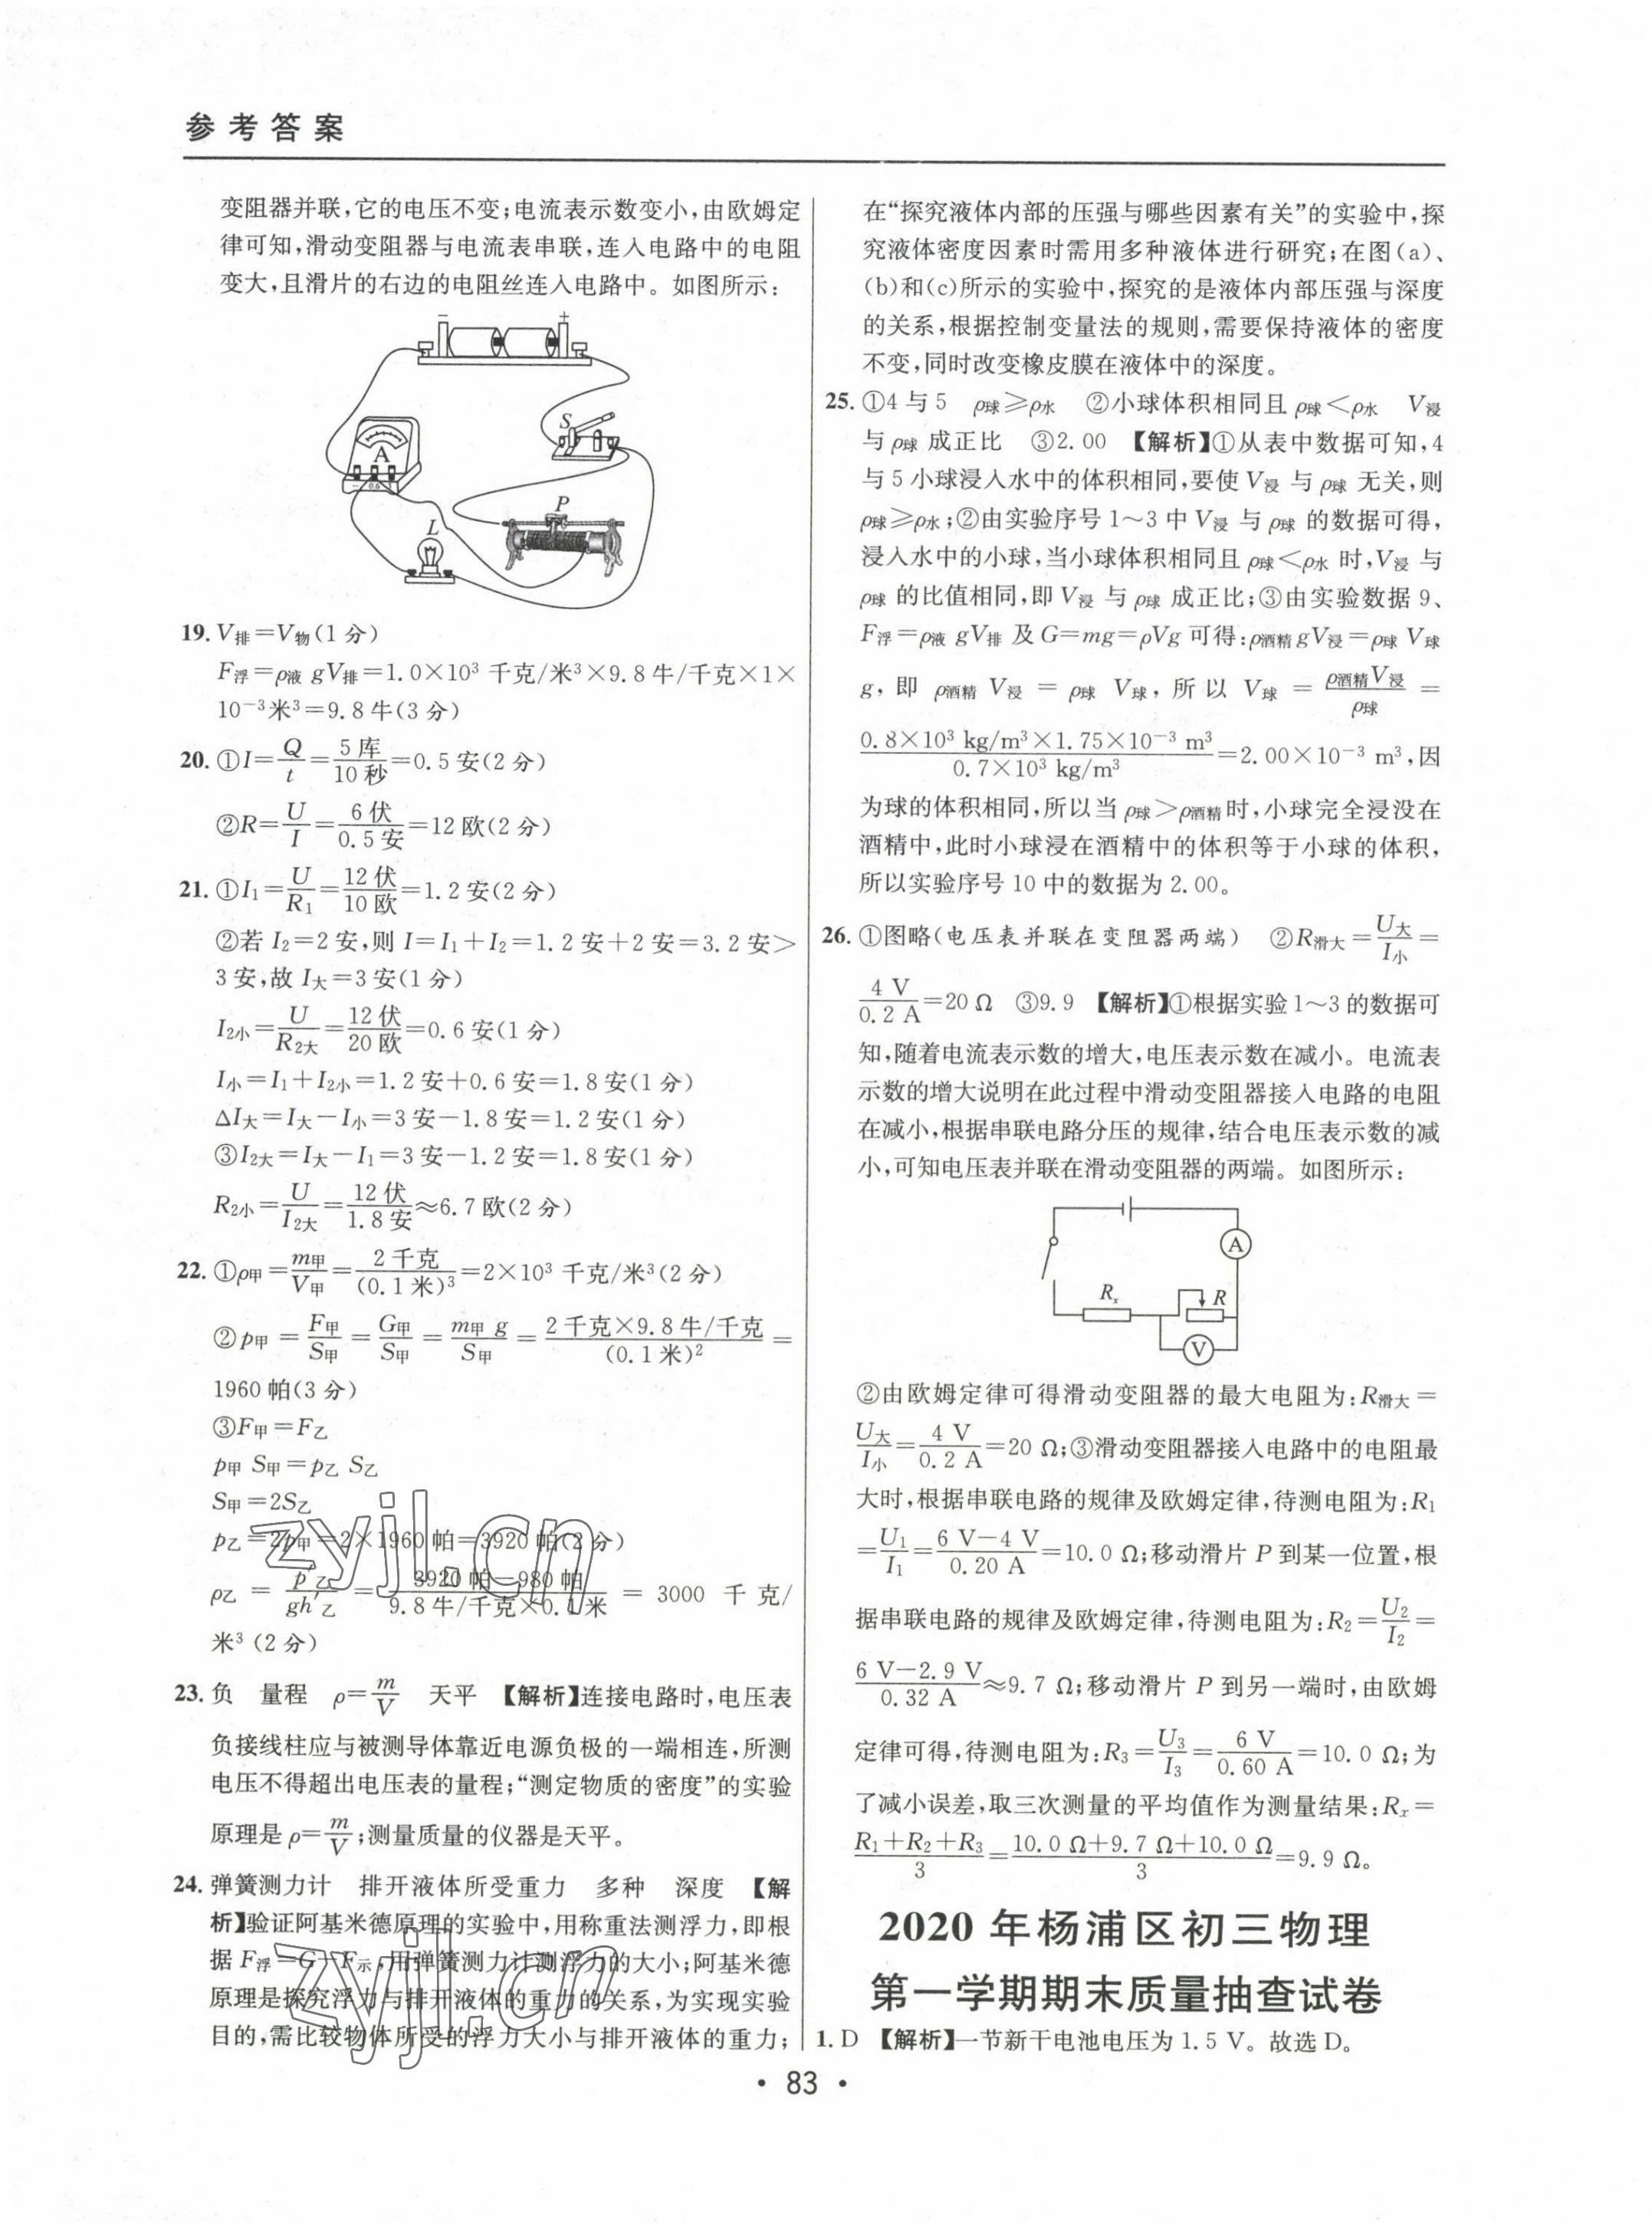 参考答案
变阻器并联,它的电压不变;电流表示数变小,由欧姆定
律可知,滑动变阻器与电流表串联,连入电路中的电阻
变大,且滑片的右边的电阻丝连入电路中。如图所示:
− +
S
A
− 0.6
P
L
19. V排=V物(1分)
F浮=ρ液 gV排=1.0×10³ 千克/米³×9.8牛/千克×1×
10⁻³米³=9.8牛(3分)
20. ①I=Q/t=5库/10秒=0.5安(2分)
②R=U/I=6伏/0.5安=12欧(2分)
21. ①I₁=U/R₁=12伏/10欧=1.2安(2分)
②若 I₂=2安,则 I=I₁+I₂=1.2安+2安=3.2安>
3安,故 I大=3安(1分)
I₂小=U/R₂大=12伏/20欧=0.6安(1分)
I小=I₁+I₂小=1.2安+0.6安=1.8安(1分)
ΔI大=I大−I小=3安−1.8安=1.2安(1分)
③I₂大=I大−I₁=3安−1.2安=1.8安(1分)
R₂小=U/I₂大=12伏/1.8安≈6.7欧(2分)
22. ①ρ甲=m甲/V甲=2千克/(0.1米)³=2×10³ 千克/米³(2分)
②p甲=F甲/S甲=G甲/S甲=m甲 g/S甲=2千克×9.8牛/千克/(0.1米)²=
1960帕(3分)
③F甲=F乙
p甲 S甲=p乙 S乙
S甲=2S乙
p乙=2p甲=2×1960帕=3920帕(2分)
ρ乙=p′乙/gh′乙=3920帕−980帕/9.8牛/千克×0.1米=3000 千克/
米³(2分)
23. 负 量程 ρ=m/V 天平 【解析】连接电路时,电压表
负接线柱应与被测导体靠近电源负极的一端相连,所测
电压不得超出电压表的量程;“测定物质的密度”的实验
原理是 ρ=m/V;测量质量的仪器是天平。
24. 弹簧测力计 排开液体所受重力 多种 深度 【解
析】验证阿基米德原理的实验中,用称重法测浮力,即根
据 F浮=G−F示,用弹簧测力计测浮力的大小;阿基米德
原理是探究浮力与排开液体的重力的关系,为实现实验
目的,需比较物体所受的浮力大小与排开液体的重力;
zyjl.cn
zyjl.cn
在“探究液体内部的压强与哪些因素有关”的实验中,探
究液体密度因素时需用多种液体进行研究;在图(a)、
(b)和(c)所示的实验中,探究的是液体内部压强与深度
的关系,根据控制变量法的规则,需要保持液体的密度
不变,同时改变橡皮膜在液体中的深度。
25. ①4与5 ρ球≥ρ水 ②小球体积相同且 ρ球<ρ水 V浸
与 ρ球 成正比 ③2.00 【解析】①从表中数据可知,4
与5小球浸入水中的体积相同,要使 V浸 与 ρ球 无关,则
ρ球≥ρ水;②由实验序号1~3中 V浸 与 ρ球 的数据可得,
浸入水中的小球,当小球体积相同且 ρ球<ρ水 时,V浸 与
ρ球 的比值相同,即 V浸 与 ρ球 成正比;③由实验数据9、
F浮=ρ液 gV排 及 G=mg=ρVg 可得:ρ酒精gV浸=ρ球 V球
g,即 ρ酒精 V浸=ρ球 V球,所以 V球=ρ酒精V浸/ρ球=
0.8×10³ kg/m³×1.75×10⁻³ m³/0.7×10³ kg/m³=2.00×10⁻³ m³,因
为球的体积相同,所以当 ρ球>ρ酒精时,小球完全浸没在
酒精中,此时小球浸在酒精中的体积等于小球的体积,
所以实验序号10中的数据为2.00。
26. ①图略(电压表并联在变阻器两端) ②R滑大=U大/I小=
4 V/0.2 A=20 Ω ③9.9 【解析】①根据实验1~3的数据可
知,随着电流表示数的增大,电压表示数在减小。电流表
示数的增大说明在此过程中滑动变阻器接入电路的电阻
在减小,根据串联电路分压的规律,结合电压表示数的减
小,可知电压表并联在滑动变阻器的两端。如图所示:
A
Rₓ
R
V
②由欧姆定律可得滑动变阻器的最大电阻为:R滑大=
U大/I小=4 V/0.2 A=20 Ω;③滑动变阻器接入电路中的电阻最
大时,根据串联电路的规律及欧姆定律,待测电阻为:R₁
=U₁/I₁=6 V−4 V/0.20 A=10.0 Ω;移动滑片 P 到某一位置,根
据串联电路的规律及欧姆定律,待测电阻为:R₂=U₂/I₂=
6 V−2.9 V/0.32 A≈9.7 Ω;移动滑片 P 到另一端时,由欧姆
定律可得,待测电阻为:R₃=U₃/I₃=6 V/0.60 A=10.0 Ω;为
了减小误差,取三次测量的平均值作为测量结果:Rₓ=
R₁+R₂+R₃/3=10.0 Ω+9.7 Ω+10.0 Ω/3=9.9 Ω。
2020年杨浦区初三物理
第一学期期末质量抽查试卷
1. D 【解析】一节新干电池电压为1.5 V。故选D。
• 83 •